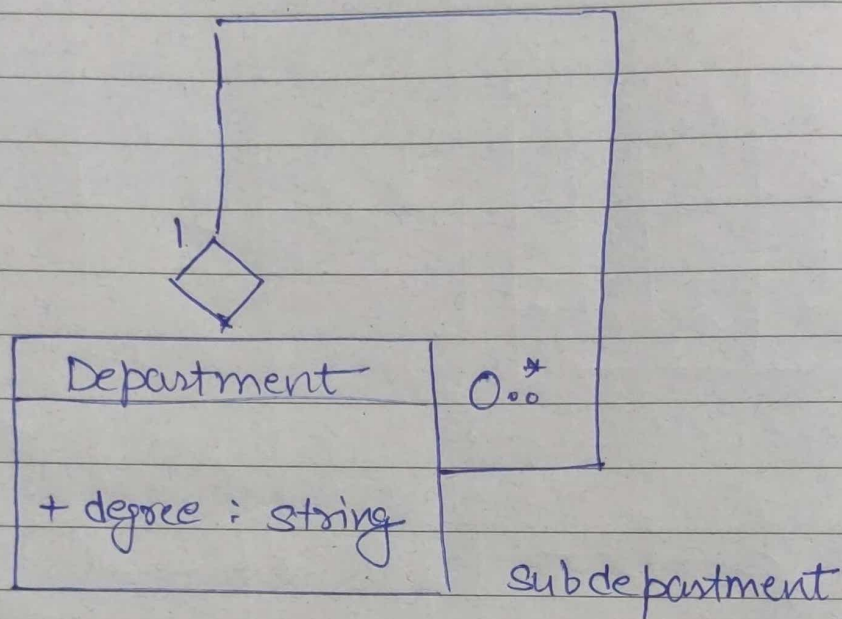 1
Department
0..*
+ degree : string
subdepartment